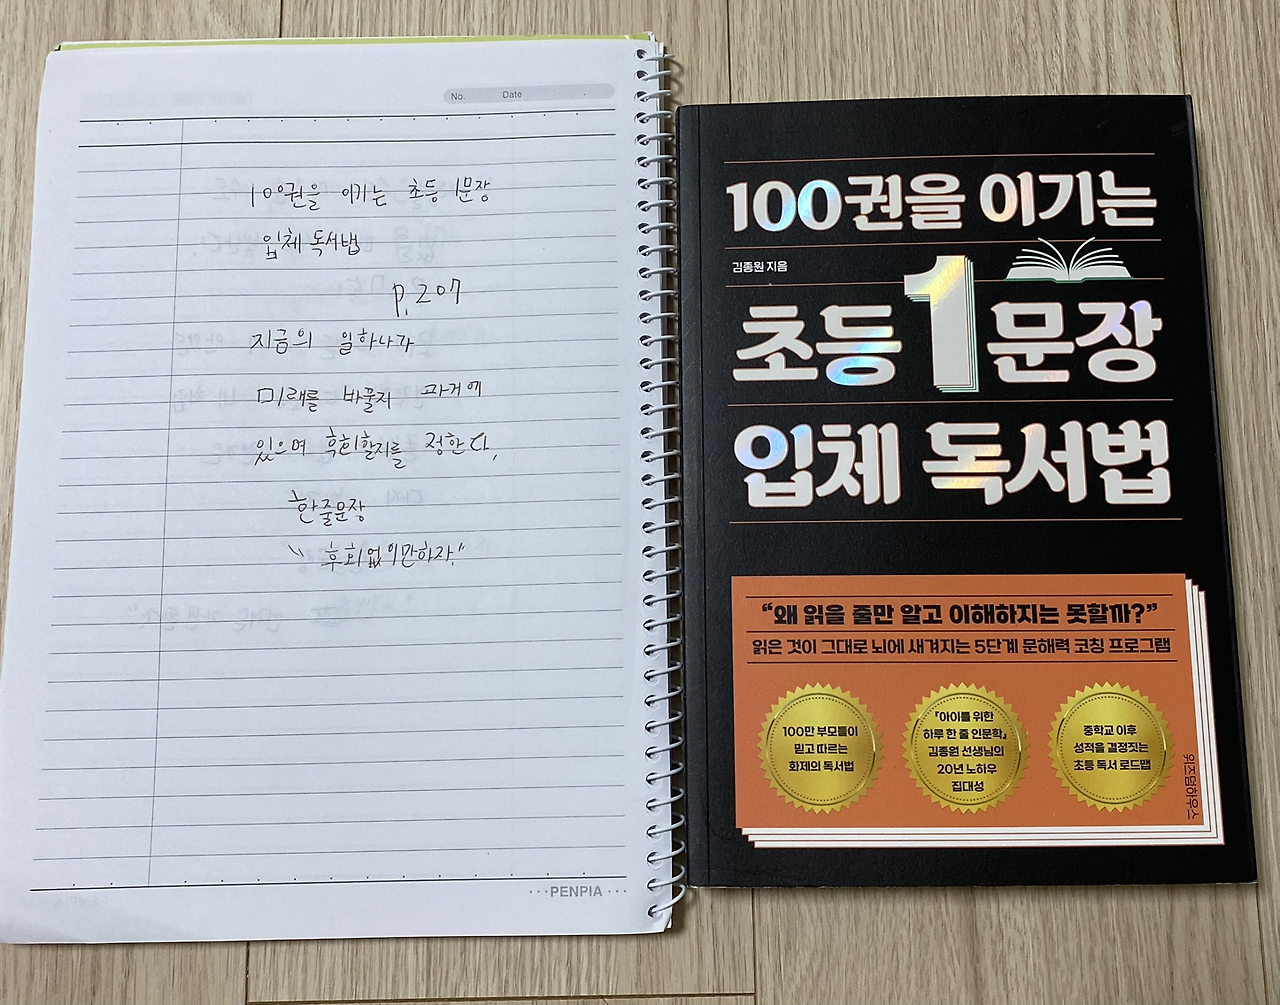 No. Date
100권을 이기는 초등 1문장
입체 독서법
p.207
지금의 일하나가
미래를 바꿀지 과거에
있으며 후회할지를 정한다.
한줄문장
"후회없이만하자."
PENPIA
100권을 이기는
김종원 지음
초등 1 문장
입체 독서법
“왜 읽을 줄만 알고 이해하지는 못할까?”
읽은 것이 그대로 뇌에 새겨지는 5단계 문해력 코칭 프로그램
100만 부모들이
믿고 따르는
화제의 독서법
『아이를 위한
하루 한 줄 인문학』
김종원 선생님의
20년 노하우
집대성
중학교 이후
성적을 결정짓는
초등 독서 로드맵
위즈덤하우스